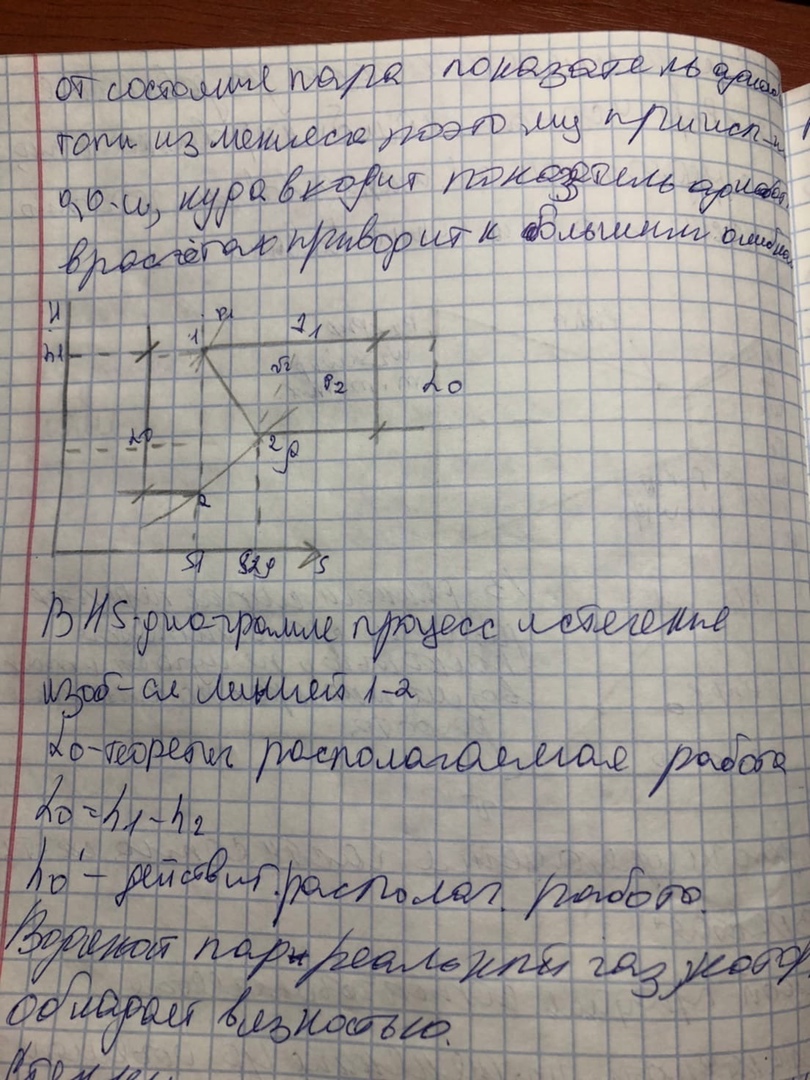 от состояние пара показатель адиаба
топи изменяеся поэтому при исп-и
куда входит показатель адиабат
в расчётах приводит к большим ошибка
H
h1
1
P1
J1
P2
L0
2
2g
2
S1
S2g
S
В HS-диаграмме процесс истечение
изоб-ся линией 1-2
L0-теоретич располагаемая работа
L0=h1-h2
L0'- действит. располаг. работа.
Водяной пар реальный газ, котор
обладает вязностью.